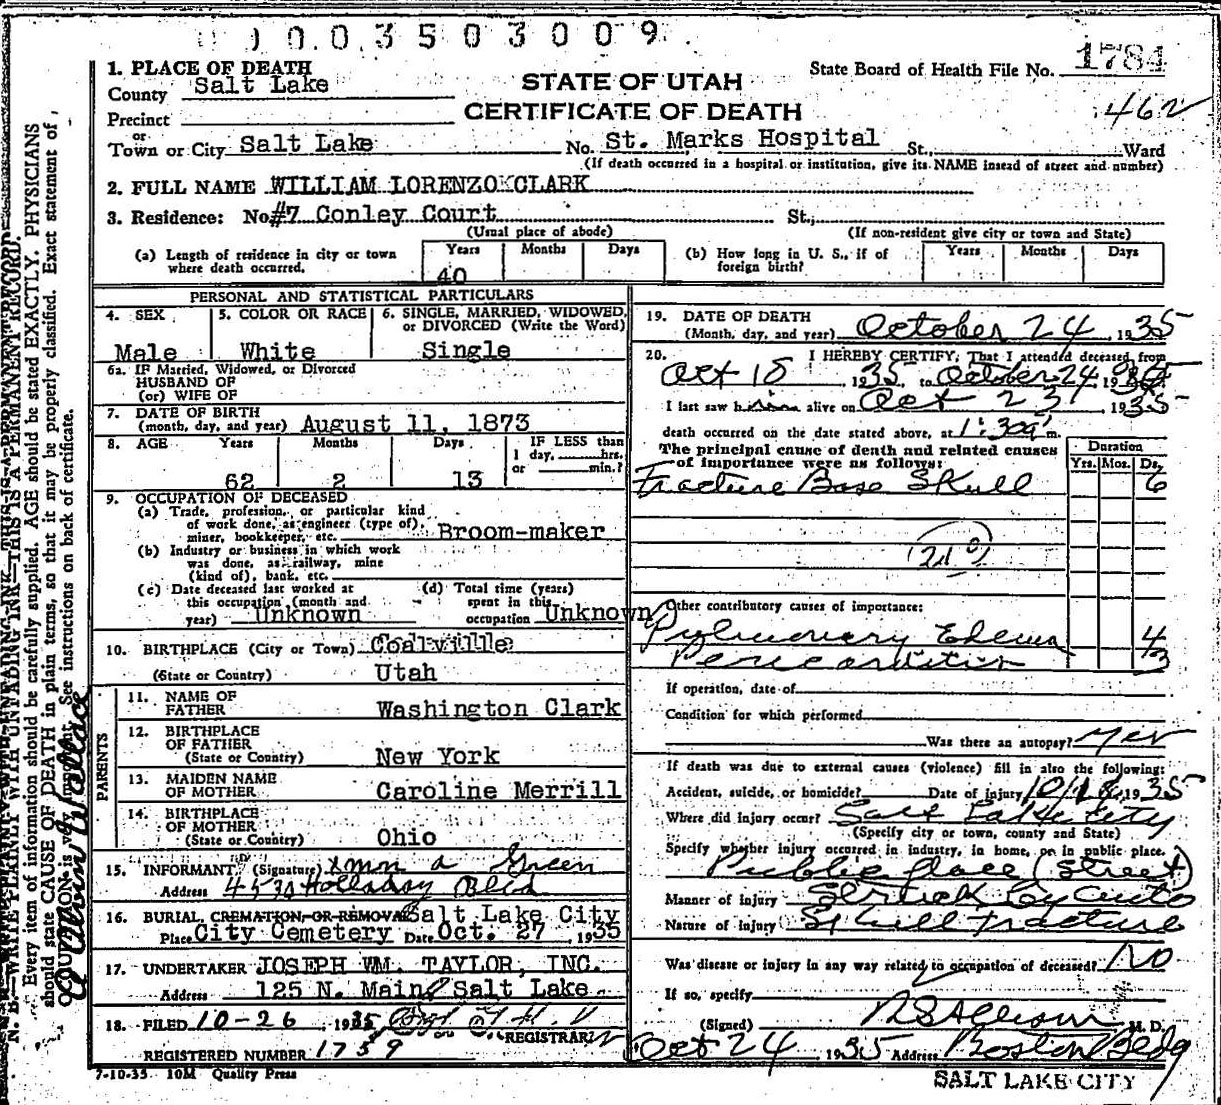 0003503009
1784
State Board of Health File No.
462
STATE OF UTAH
CERTIFICATE OF DEATH
1. PLACE OF DEATH
County Salt Lake
Precinct
or
Town or City Salt Lake No. St. Marks Hospital St., Ward
(If death occurred in a hospital or institution, give its NAME insead of street and number)
2. FULL NAME WILLIAM LORENZO CLARK
3. Residence: No. #7 Conley Court St.,
(Usual place of abode) (If non-resident give city or town and State)
(a) Length of residence in city or town where death occurred. Years Months Days
40
(b) How long in U. S., if of foreign birth? Years Months Days
PERSONAL AND STATISTICAL PARTICULARS
4. SEX 5. COLOR OR RACE 6. SINGLE, MARRIED, WIDOWED,
or DIVORCED (Write the Word)
Male White Single
6a. IF Married, Widowed, or Divorced
HUSBAND OF
(or) WIFE OF
7. DATE OF BIRTH
(month, day, and year) August 11, 1873
8. AGE Years Months Days IF LESS than
1 day, hrs.
or min.?
62 2 13
9. OCCUPATION OF DECEASED
(a) Trade, profession, or particular kind
of work done, as engineer (type of),
miner, bookkeeper, etc. Broom-maker
(b) Industry or business in which work
was done, as railway, mine
(kind of), bank, etc.
(c) Date deceased last worked at
this occupation (month and
year) Unknown
(d) Total time (years)
spent in this
occupation Unknown
10. BIRTHPLACE (City or Town) Coalville
(State or Country) Utah
PARENTS
11. NAME OF
FATHER Washington Clark
12. BIRTHPLACE
OF FATHER
(State or Country) New York
13. MAIDEN NAME
OF MOTHER Caroline Merrill
14. BIRTHPLACE
OF MOTHER
(State or Country) Ohio
15. INFORMANT (Signature) a Green
Address Holladay Blvd
16. BURIAL, CREMATION, OR REMOVAL Salt Lake City
Place City Cemetery Date Oct. 27, 1935
17. UNDERTAKER JOSEPH WM. TAYLOR, INC.
Address 125 N. Main, Salt Lake
18. FILED 10-26, 1935
REGISTRAR
REGISTERED NUMBER 1759
7-10-35 10M Quality Press
19. DATE OF DEATH
(Month, day, and year) October 24 1935
20. I HEREBY CERTIFY, That I attended deceased from
Oct 18, 1935, to October 24, 1935
I last saw him alive on Oct 23, 1935
death occurred on the date stated above, at 1:30 a m.
The principal cause of death and related causes
of importance were as follows:
Duration
Yrs. Mos. Ds.
Fracture Base Skull 6
Other contributory causes of importance:
Pulmonary Edema 4
Pericarditis 3
If operation, date of
Condition for which performed
Was there an autopsy? Yes
If death was due to external causes (violence) fill in also the following:
Accident, suicide, or homicide? Date of injury 10/18, 1935
Where did injury occur? Salt Lake City
(Specify city or town, county and State)
Specify whether injury occurred in industry, in home, or in public place.
Public place (Street)
Manner of injury Struck by auto
Nature of injury Skull fracture
Was disease or injury in any way related to occupation of deceased? No
If so, specify
(Signed) M. D.
Oct 24, 1935 Address Boston Bldg
SALT LAKE CITY
N. B.—WRITE PLAINLY WITH UNFADING INK—THIS IS A PERMANENT RECORD
Every item of information should be carefully supplied. AGE should be stated EXACTLY. PHYSICIANS
should state CAUSE OF DEATH in plain terms, so that it may be properly classified. Exact statement of
OCCUPATION is very important. See instructions on back of certificate.
Wallace